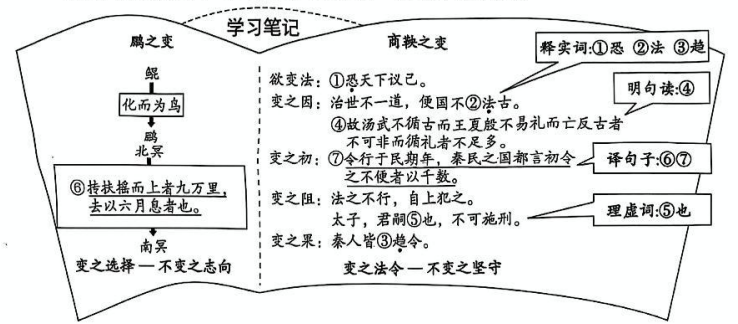 学习笔记
鹏之变
鲲
化而为鸟
鹏
北冥
⑥抟扶摇而上者九万里，
去以六月息者也。
南冥
变之选择—不变之志向
商鞅之变
欲变法：①恐天下议己。
变之因：治世不一道，便国不②法古。
④故汤武不循古而王夏殷不易礼而亡反古者
不可非而循礼者不足多。
变之初：⑦令行于民期年，秦民之国都言初令
之不便者以千数。
变之阻：法之不行，自上犯之。
太子，君嗣⑤也，不可施刑。
变之果：秦人皆③趋令。
变之法令—不变之坚守
释实词:①恐 ②法 ③趋
明句读:④
译句子:⑥⑦
理虚词:⑤也